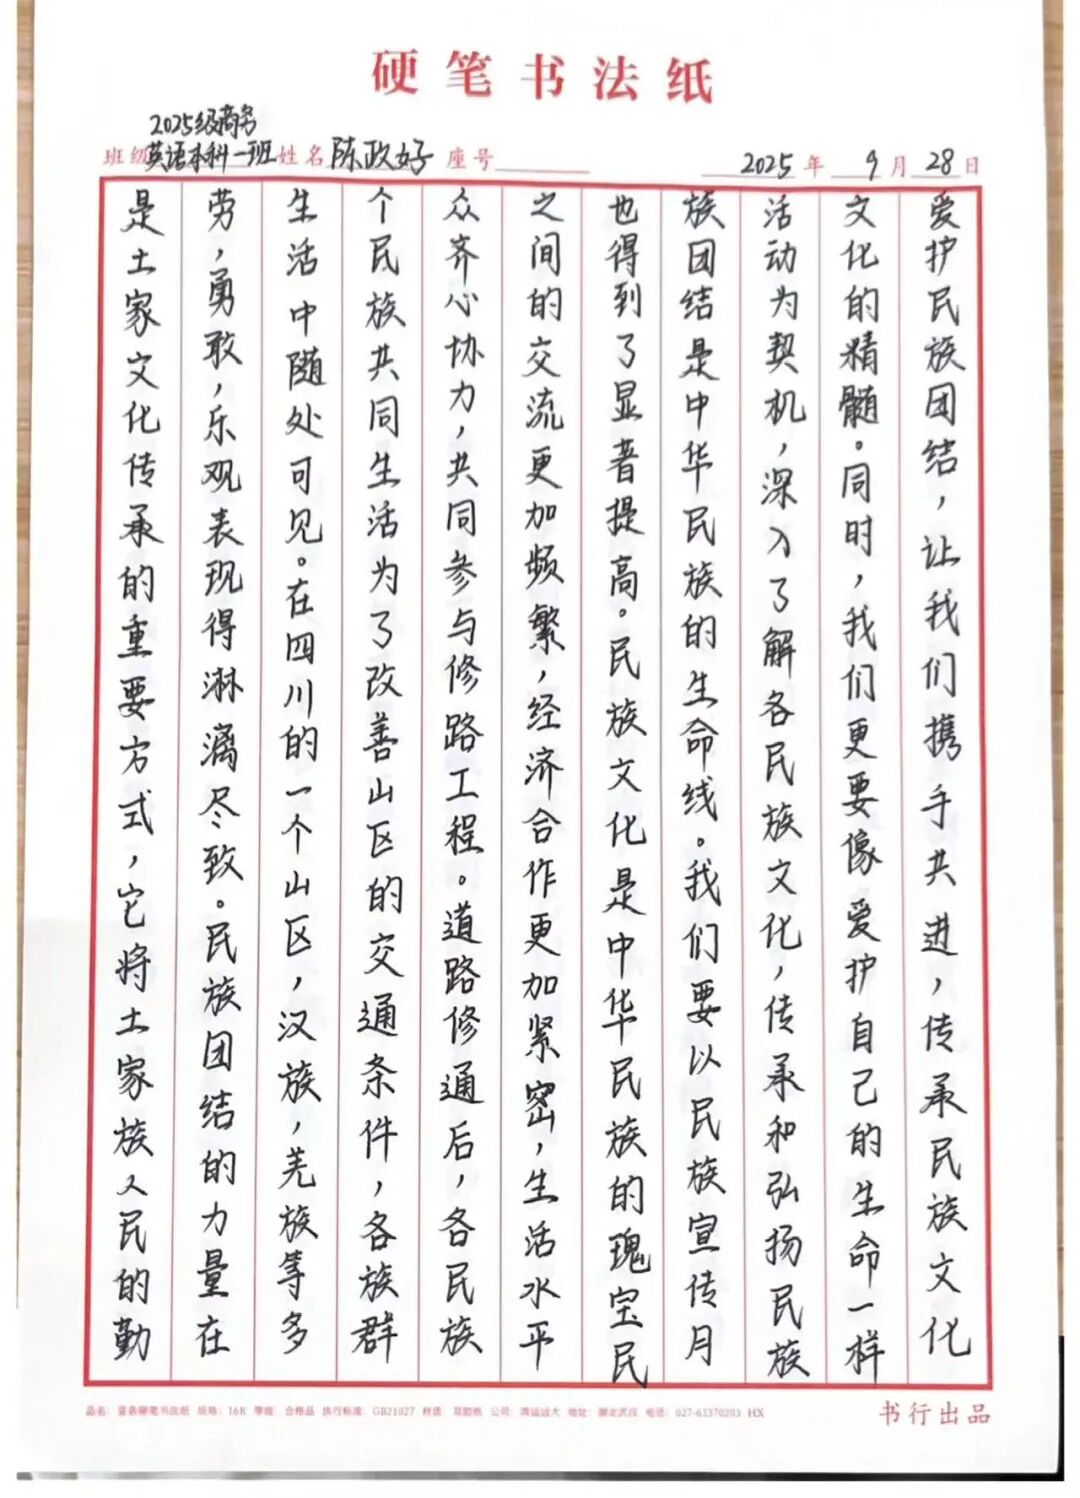 硬笔书法纸
2025级商务
班级英语本科一班 姓名 陈政好 座号 2025年 9月 28日
是土家文化传承的重要方式，它将土家族人民的勤
劳，勇敢，乐观表现得淋漓尽致。民族团结的力量在
生活中随处可见。在四川的一个山区，汉族，羌族等多
个民族共同生活为了改善山区的交通条件，各族群
众齐心协力，共同参与修路工程。道路修通后，各民族
之间的交流更加频繁，经济合作更加紧密，生活水平
也得到了显著提高。民族文化是中华民族的瑰宝民
族团结是中华民族的生命线。我们要以民族宣传月
活动为契机，深入了解各民族文化，传承和弘扬民族
文化的精髓。同时，我们更要像爱护自己的生命一样
爱护民族团结，让我们携手共进，传承民族文化
品名： 硬笔书法纸 规格：16K 等级：合格品 执行标准：GB21027 材质：双胶纸 公司： 地址：湖北武汉 电话：027-63370203 HX 书行出品